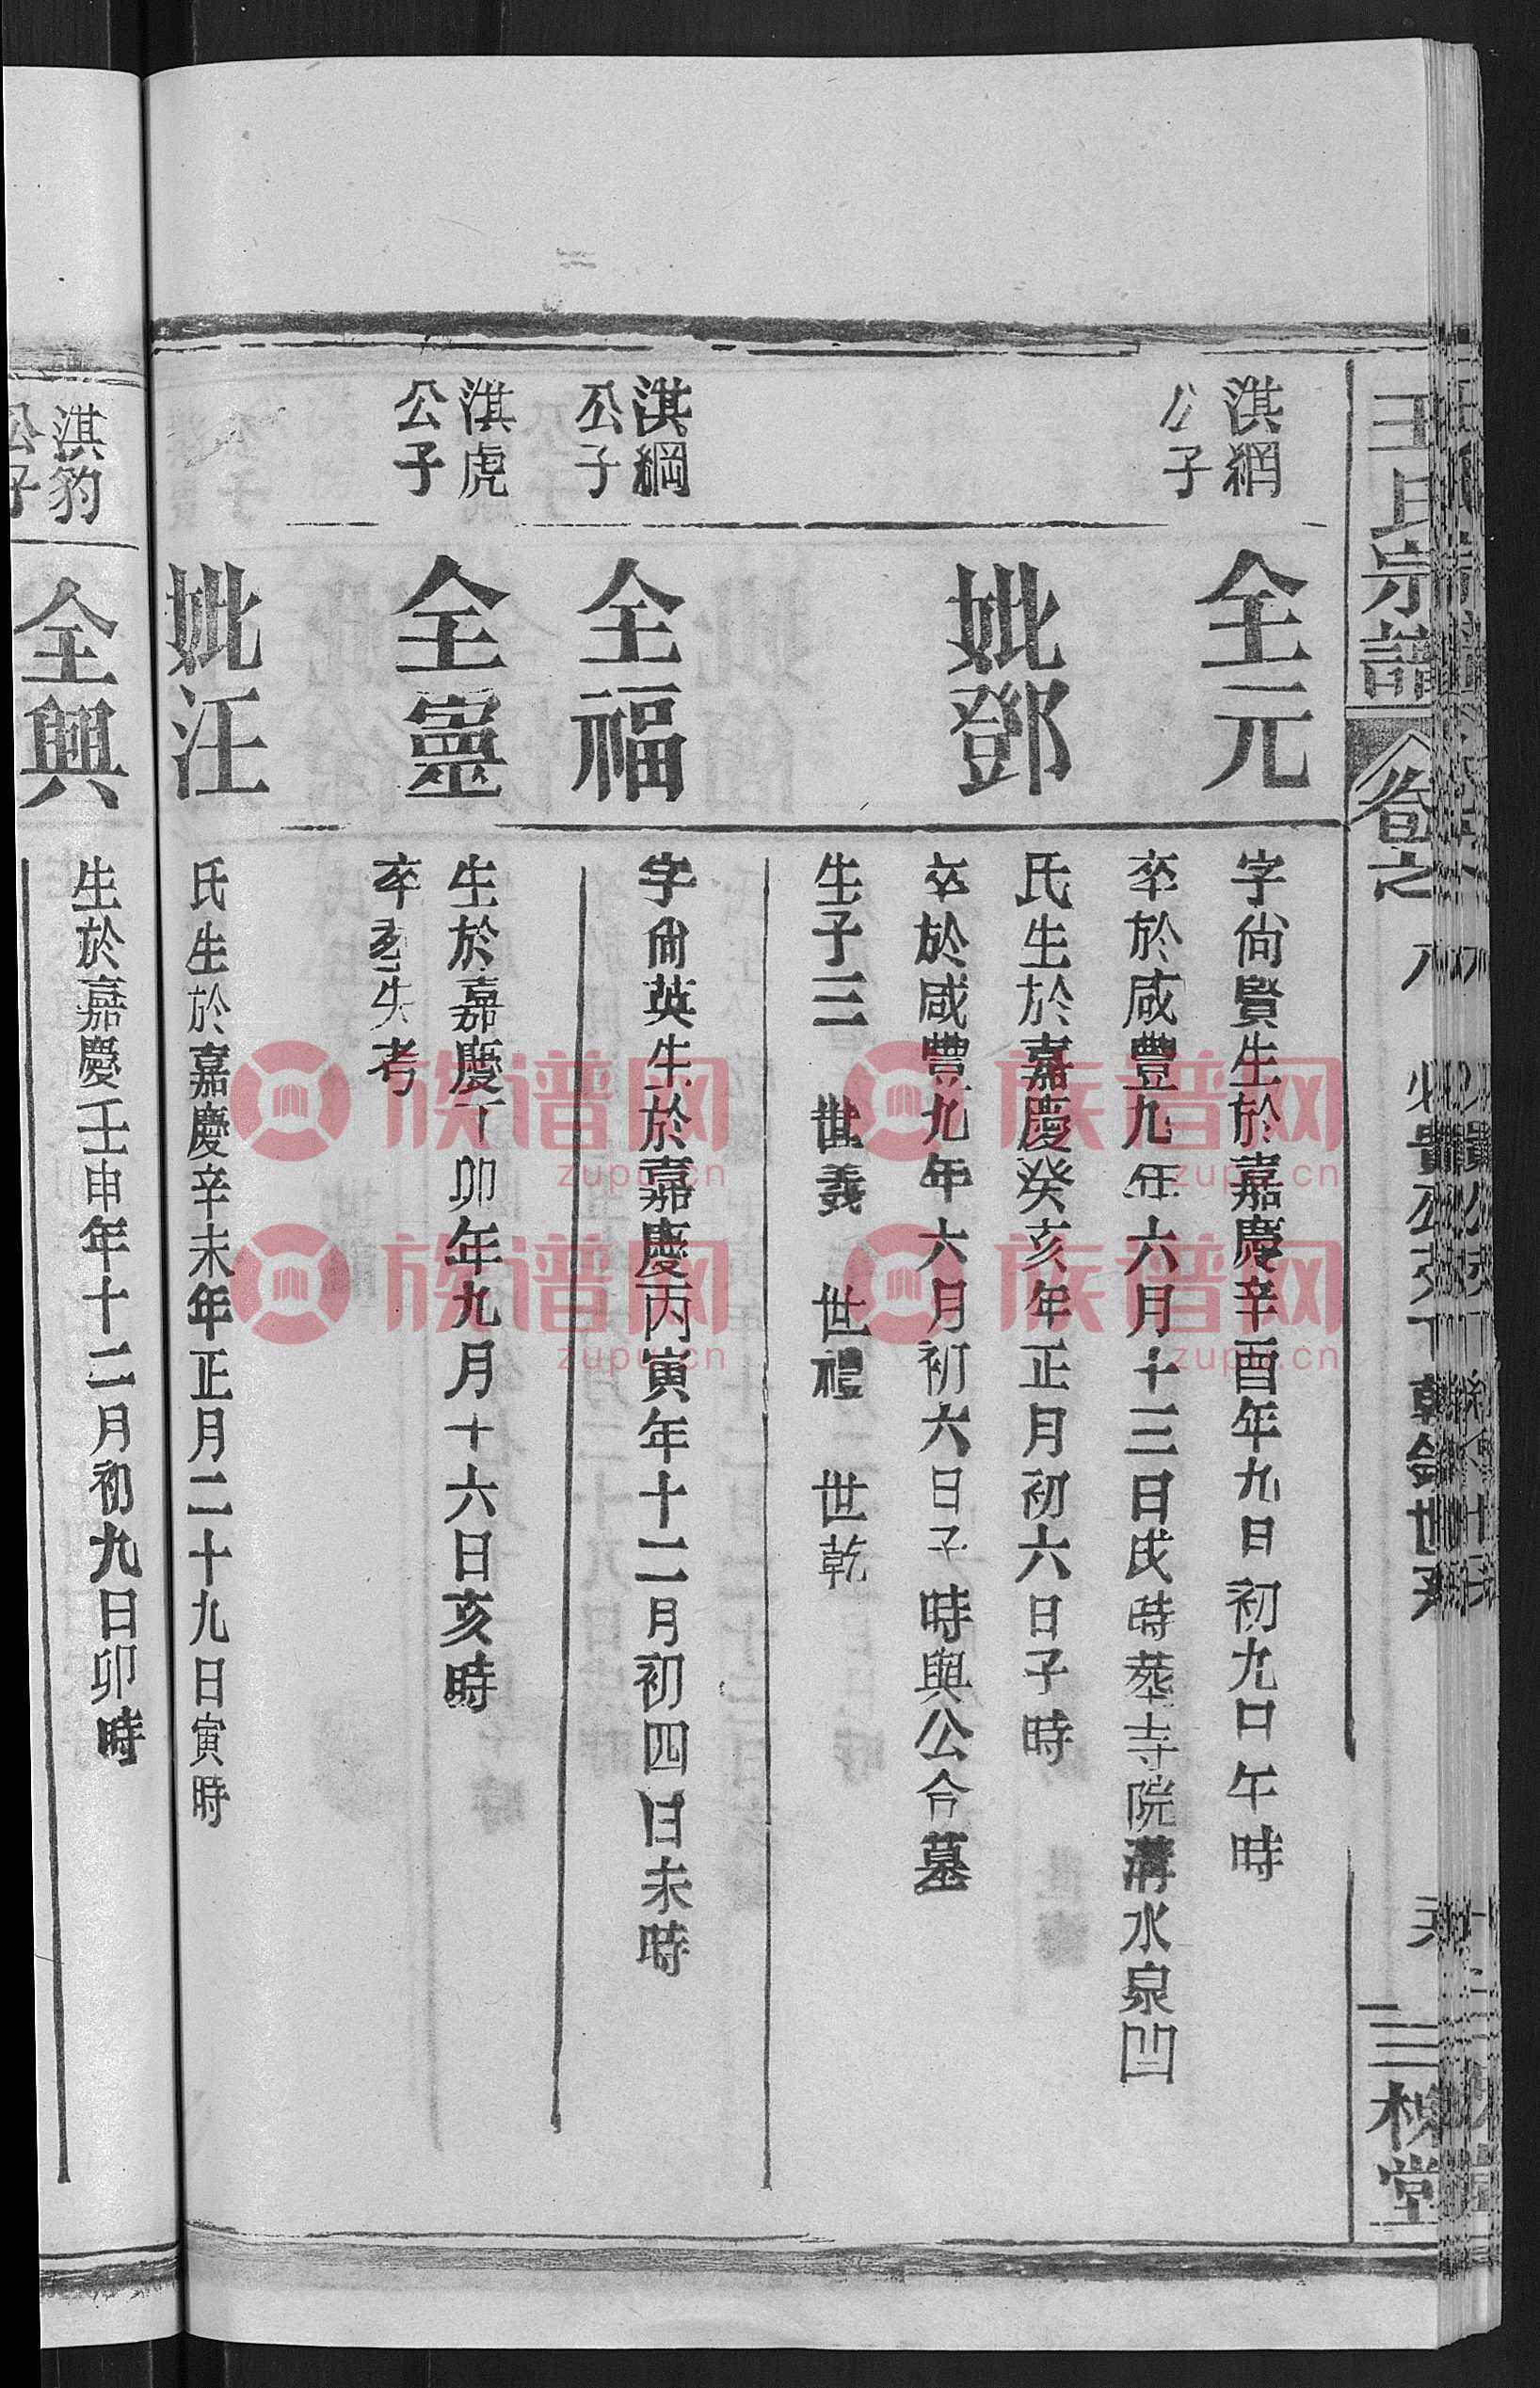 王氏宗譜
卷之八
三槐堂
淇網公子
全元
字尙賢生於嘉慶辛酉年九日初九口午時
卒於咸豐九年六月十三日戌時葬寺院溝水泉凹
妣鄧
氏生於嘉慶癸亥年正月初六日子時
卒於咸豐九年六月初六日子時與公合墓
生子三 世義 世禮 世乾
淇綱公子
全福
字尙英生於嘉慶丙寅年十二月初四日未時
淇虎公子
全𤫊
生於嘉慶丁卯年九月十六日亥時
卒葬失考
妣汪
氏生於嘉慶辛未年正月二十九日寅時
淇豹公子
全興
生於嘉慶壬申年十二月初九日卯時
族谱网
zupu.cn
族谱网
zupu.cn
族谱网
zupu.cn
族谱网
zupu.cn